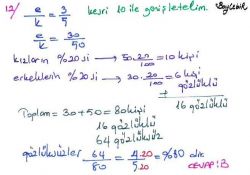 12/ e/k = 3/5 kesri 10 ile genişletelim.
e/k = 30/50
kızların %20si → 50.20/100 = 10 kişi
erkeklerin %20si → 30.20/100 = 6 kişi
+ gözlüklü
16 gözlüklü
Toplam = 30+50 = 80 kişi
16 gözlüklü
64 gözlüksüz
gözlüksüzler 64/80 = 4.20/5.20 = %80 dir.
CEVAP: B